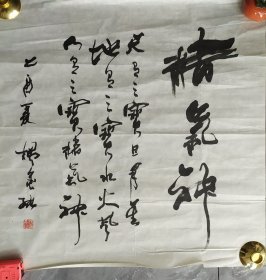 精氣神
天有三寶日月星
地有三寶水火風
人有三寶精氣神
七月夏 楊